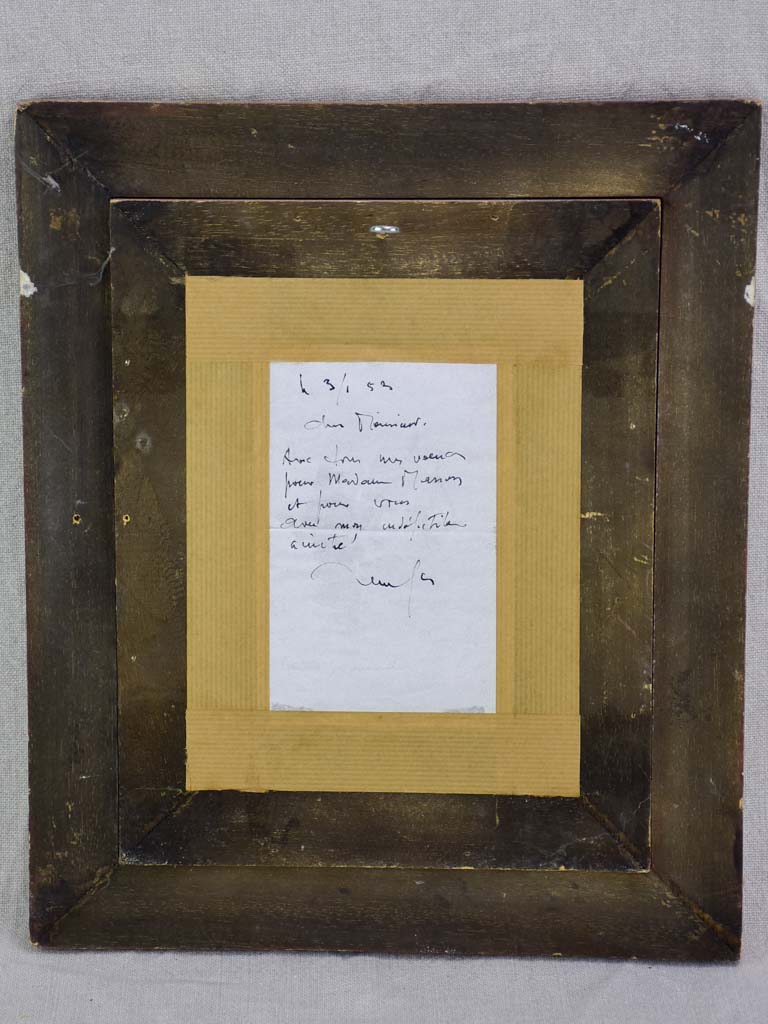 le 3/1 53
cher Monsieur.
Avec tous mes voeux
pour Madame Masson
et pour vous
avec mon indéfectible
amitié